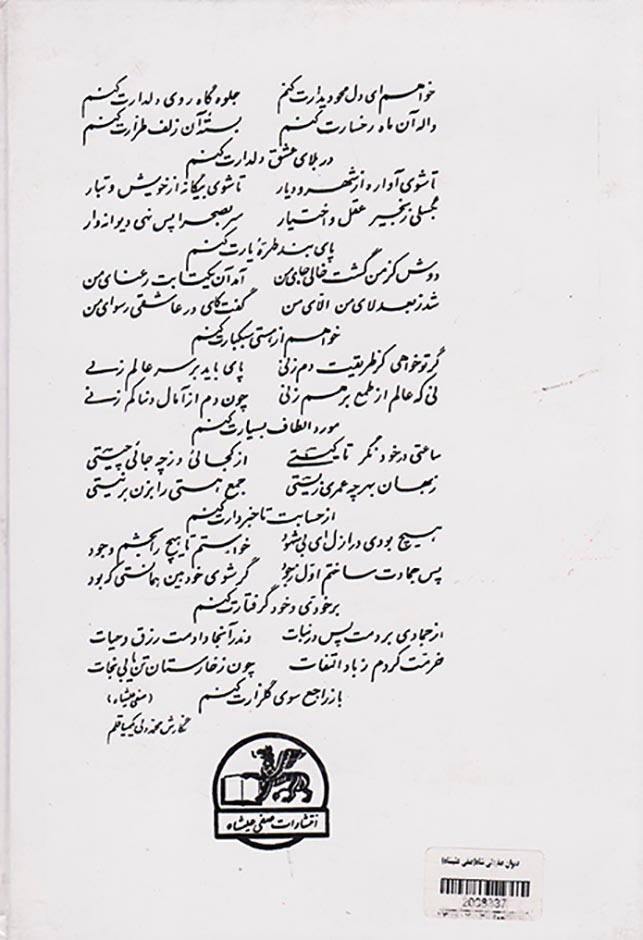 خواهم ای دل محو دیدارت کنم جلوه گاه روی دلدارت کنم
واله آن ماه رخسارت کنم بستهٔ آن زلف طرارت کنم
در بلای عشق دلدارت کنم
تا شوی آواره از شهر و دیار تا شوی بیگانه از خویش و تبار
بگسلی زنجیر عقل و اختیار سر بصحرا پس نهی دیوانه وار
پای بند طرهٔ یارت کنم
دوش کز من گشت خالی جای من آمد آن یکتا بت رعنای من
شد ز بعد لای من الّای من گفت کای در عاشقی رسوای من
خواهم از هستی سبکبارت کنم
گر تو خواهی کز طریقت دم زنی پای باید بر سر عالم زنی
نی که عالم از طمع بر هم زنی چون دم از آمال دنیا کم زنی
مورد الطاف بسیارت کنم
ساعتی در خود نگر تا کیستی از کجائی وز چه جائی چیستی
در جهان بهر چه عمری زیستی جمع هستی را بزن بر نیستی
از حسابت تا خبردارت کنم
هیچ بودی در ازل ای بی شهود خواستم تا هیچ را بخشم وجود
پس جمادت ساختم اول ز جود گر شوی خودبین همانستی که بود
بر خودی و خود گرفتارت کنم
از جمادی بردمت پس در نبات وندر آنجا دادمت رزق و حیات
خرمت کردم ز باد التفات چون ز خارستان تن یابی نجات
باز راجع سوی گلزارت کنم (صفی علیشاه)
نگارش محمدولی کیمیاقلم
انتشارات صفی علیشاه
دیوان صفی علیشاه